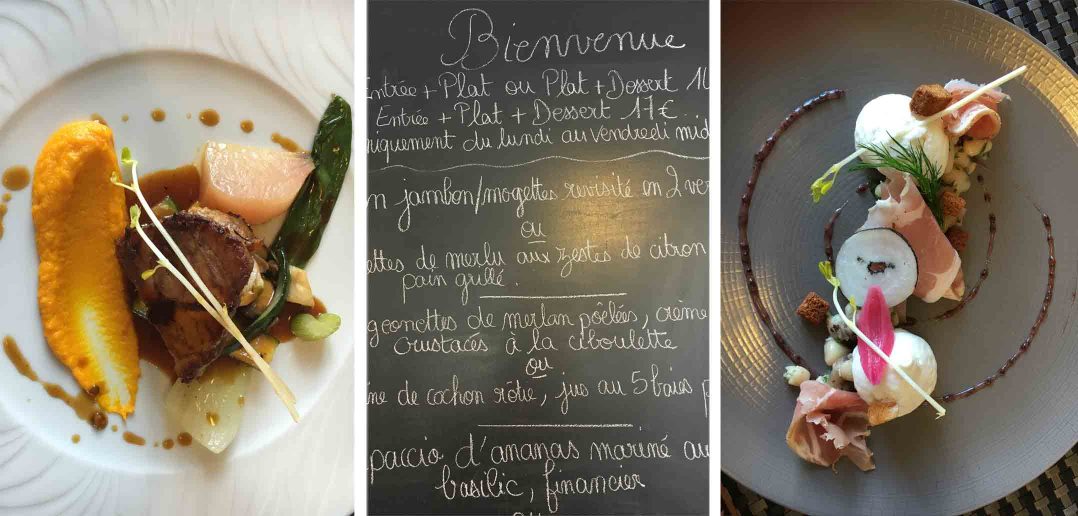 Bienvenue
Entrée + Plat ou Plat + Dessert 1
Entrée + Plat + Dessert 17€
riquement du lundi au vendredi mid
n jambon/mogettes revisité en 2 ver
ou
ettes de merlu aux zestes de citron
pain grillé.
geonettes de merlan pôelées, crème
crustacés à la ciboulette
ou
ne de cochon rôtie, jus au 5 baies p
paccio d'ananas mariné au
basilic, financier